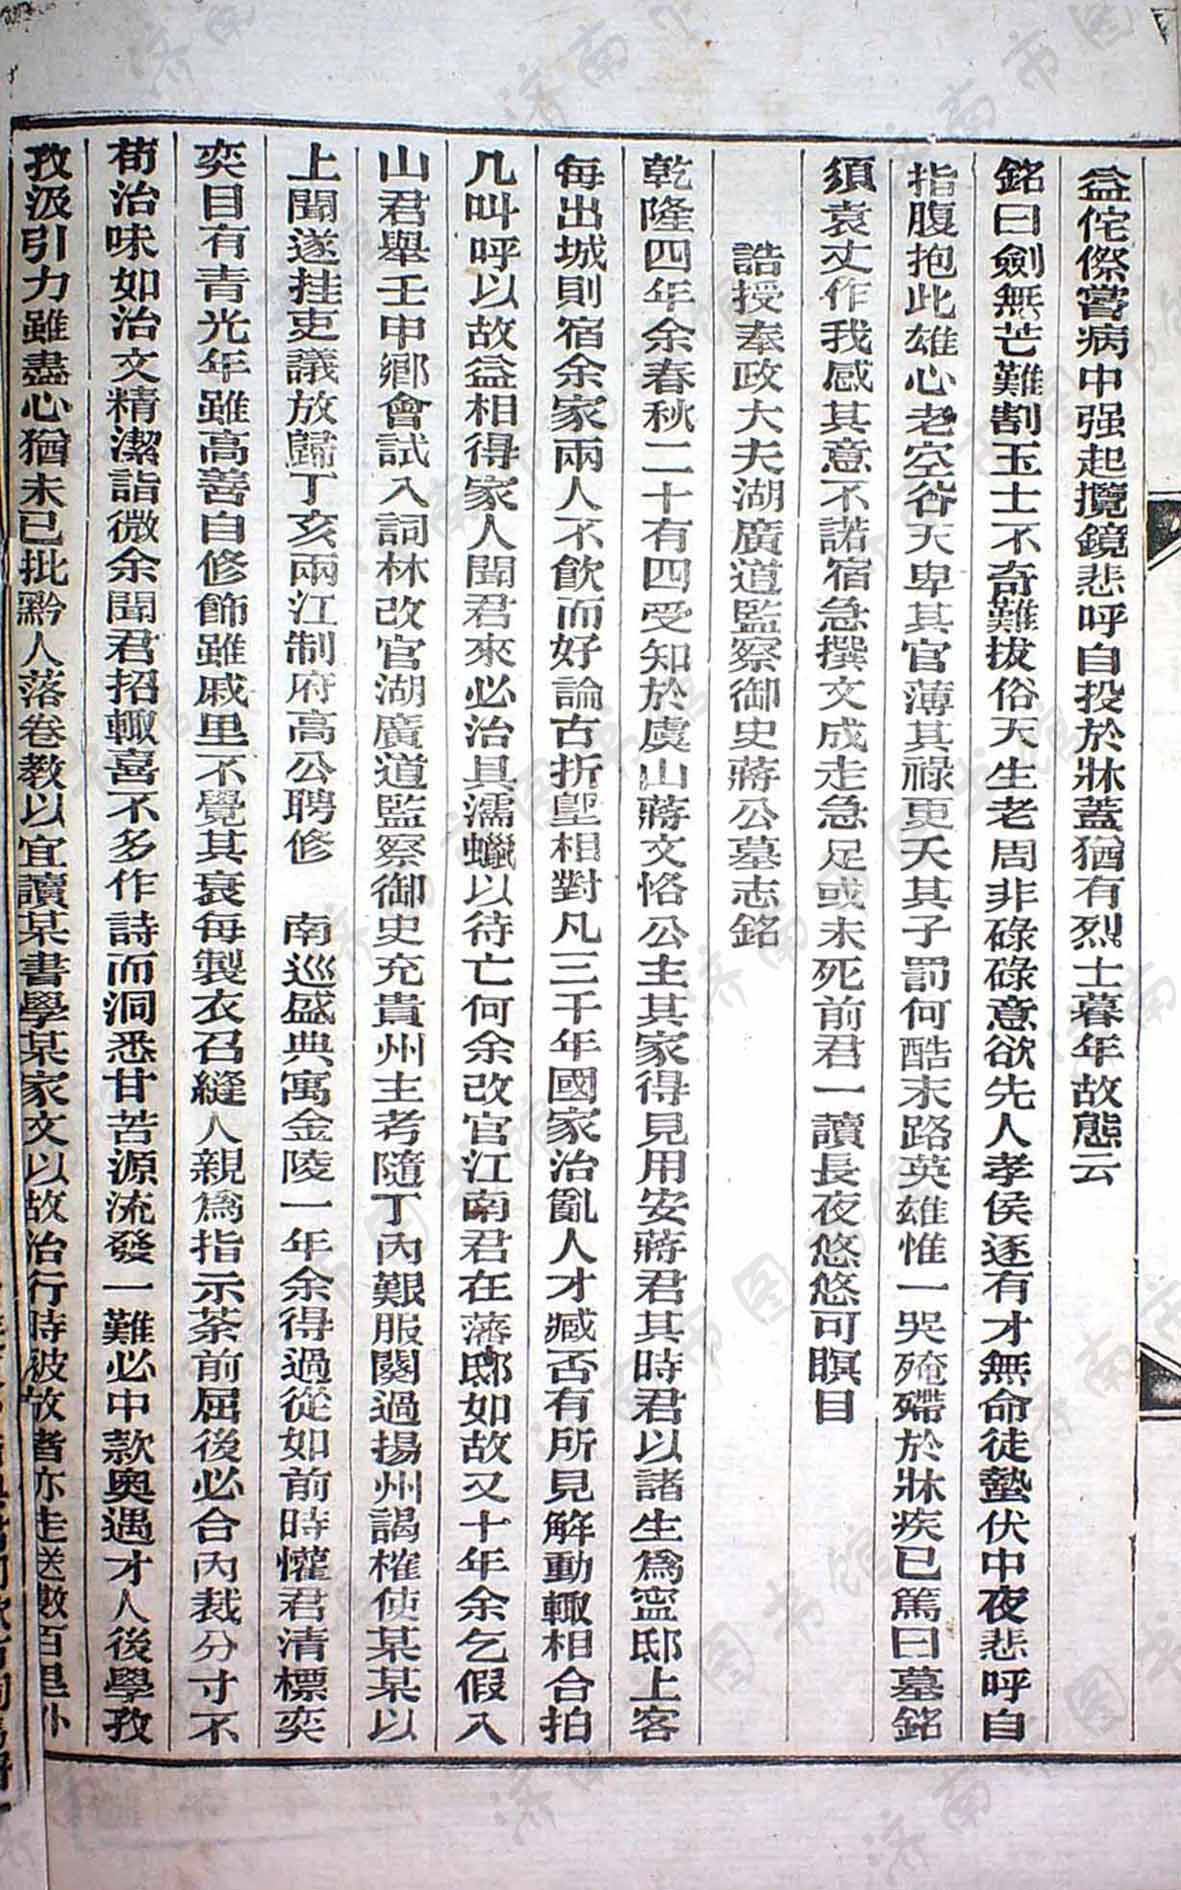 益侘傺嘗病中强起攬鏡悲呼自投於牀蓋猶有烈士暮年故態云
銘曰劍無芒難割玉士不奇難拔俗天生老周非碌碌意欲先人孝侯逐有才無命徒蟄伏中夜悲呼自
指腹抱此雄心老空谷天卑其官薄其祿更夭其子罰何酷末路英雄惟一哭殗殢於牀疾已篤曰墓銘
須袁丈作我感其意不諾宿急撰文成走急足或未死前君一讀長夜悠悠可瞑目
誥授奉政大夫湖廣道監察御史蔣公墓志銘
乾隆四年余春秋二十有四受知於虞山蔣文恪公主其家得見用安蔣君其時君以諸生爲寍邸上客
每出城則宿余家兩人不飲而好論古折堲相對凡三千年國家治亂人才臧否有所見解動輒相合拍
几叫呼以故益相得家人聞君來必治具濡蠟以待亡何余改官江南君在藩邸如故又十年余乞假入
山君舉壬申鄉會試入詞林改官湖廣道監察御史充貴州主考隨丁內艱服闋過揚州謁榷使某某以
上聞遂挂吏議放歸丁亥兩江制府高公聘修　南巡盛典寓金陵一年余得過從如前時懽君清標奕
奕目有青光年雖高善自修飾雖戚里不覺其衰每製衣召縫人親爲指示茶前屈後必合內裁分寸不
苟治味如治文精潔詣微余聞君招輒喜不多作詩而洞悉甘苦源流發一難必中款奧遇才人後學孜
孜汲引力雖盡心猶未已批黔人落卷教以宜讀某書學某家文以故治行時被放者亦走送數百里外